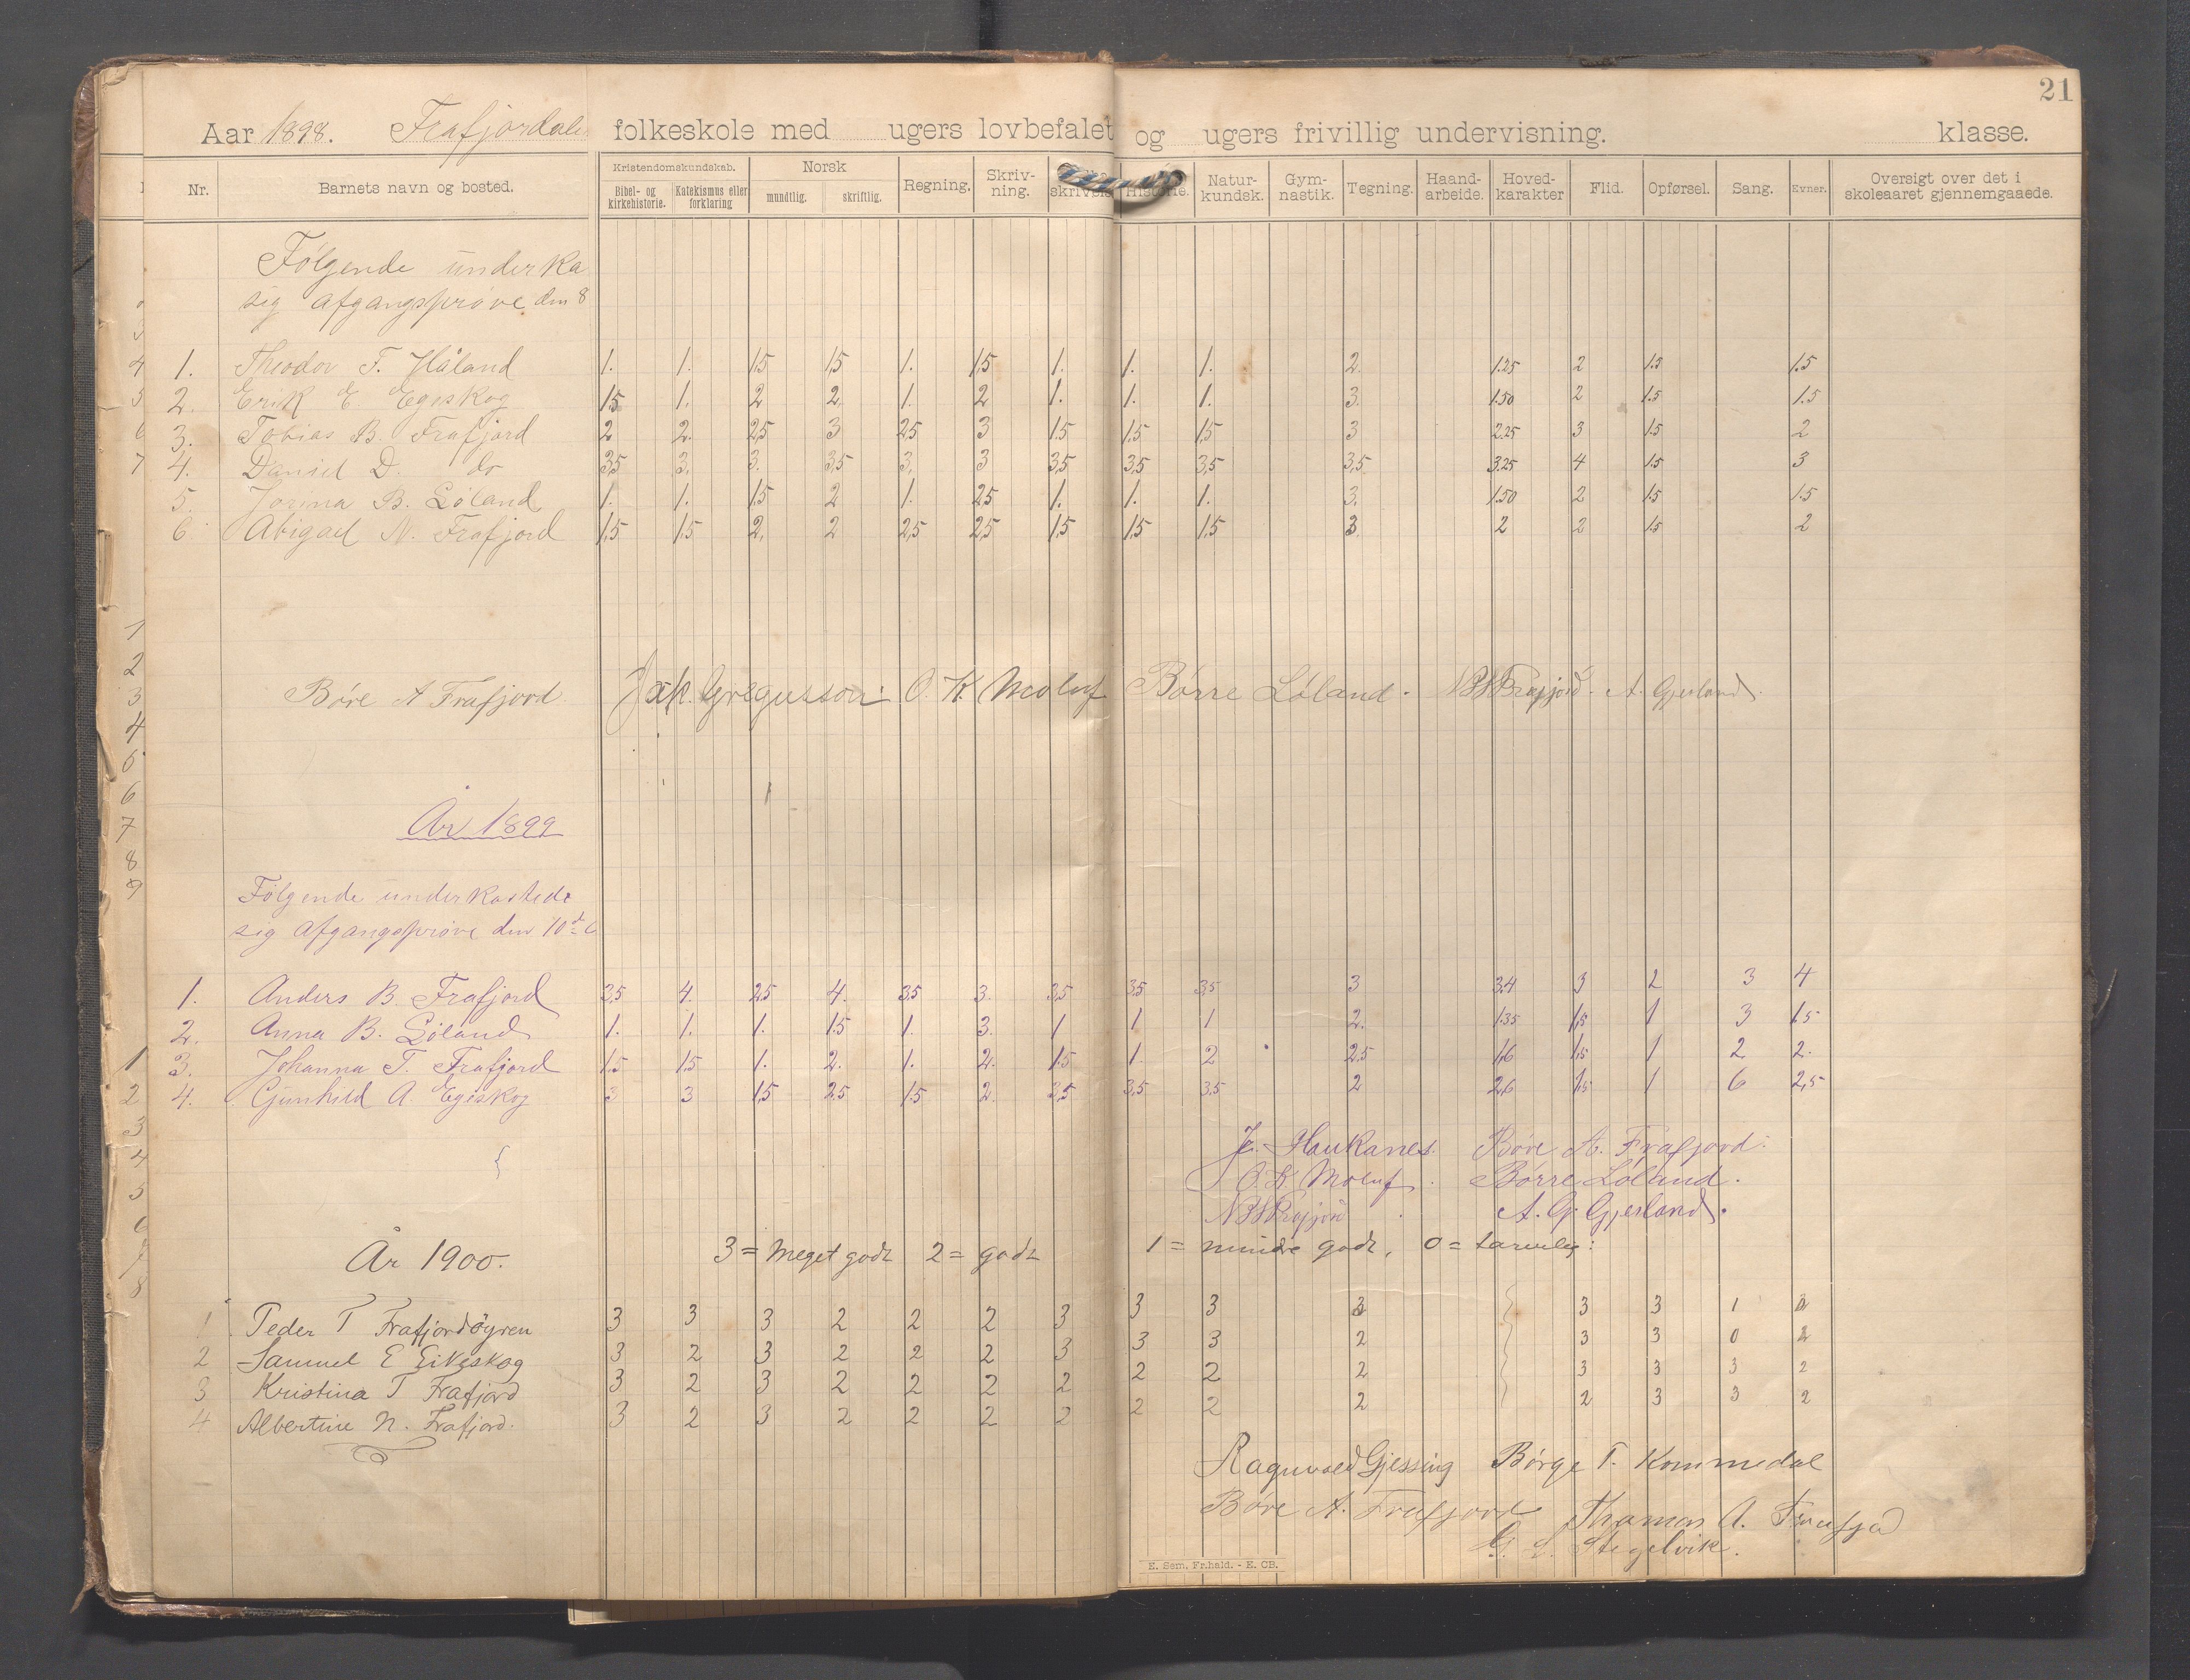 21
Aar 1898. Frafjordals folkeskole med ugers lovbefalet og ugers frivillig undervisning. klasse.
Nr. Barnets navn og bosted. Kristendomskundskab. Bibel- og kirkehistorie. Katekismus eller forklaring Norsk mundtlig. skriftlig. Regning. Skriv-ning. Historie. Natur-kundsk. Gym-nastik. Tegning. Haand-arbeide. Hoved-karakter Flid. Opførsel. Sang. Evner. Oversigt over det i skoleaaret gjennemgaaede.
Følgende underka
sig afgangsprøve den 8
1. Theodor T. Håland 1. 1. 1,5 1,5 1. 1,5 1. 1. 1. 2. 1.25 2 1.5 1.5
2. Erik E Egeskog 1.5 1. 2 2 1. 2 1. 1. 1. 3. 1.50 2 1.5 1.5
3. Tobias B. Frafjord 2 2. 2,5 3 2,5 3 1.5 1,5 1,5 3 2.25 3 1.5 2
4. Daniel D. do 3,5 3. 3. 3,5 3. 3 3,5 3,5 3,5 3,5 3.25 4 1.5 3
5. B. Løland 1. 1. 1.5 2 1. 2,5 1. 1. 1. 3. 1.50 2 1.5 1.5
6. Abigael N. Frafjord 1,5 1,5 2. 2 2,5 2,5 1.5 1,5 1,5 3 2 2 1.5 2
Børe A Frafjord. Jak. Gregusson. O. K Moluf Børre Løland. A. Gjerland.
År 1899
Følgende underkastede
sig afgangsprøve den 10d
1. Anders B. Frafjord 3,5 4. 2,5 4. 3,5 3. 3,5 3,5 3,5 3 3.4 3 2 3 4
2. Anna B. Løland 1. 1. 1. 1.5 1. 3. 1 1 1 2. 1.35 1,5 1 3 1.5
3. Johanna T. Frafjord 1.5 1,5 1. 2. 1. 2. 1.5 1 2 2.5 1,6 1,5 1 2 2.
4. Gunhild A. Egeskog 3 3 1,5 2,5 1.5 2. 3,5 3,5 3,5 2 2,6 1,5 1 6 2,5
J. Haukanes. Børe A. Frafjord.
O. K Moluf. Børre Løland.
A. G. Gjerland.
År 1900. 3 = meget godt 2 = godt 1 = mindre godt, 0 = tarvelig:
1 Peder T Frafjordøyren 3 3 3 2 2 2 3 3 3 3 3 3 1 2
2 Samuel E Eikeskog 3 2 3 2 2 2 3 3 3 2 3 3 0 2
3 Kristina T Frafjord 3 2 3 2 2 2 2 2 2 2 3 3 3 2
4 Albertine N. Frafjord. 3 2 3 2 2 2 2 2 2 2 2 3 3 2
Ragnvald Gjessing Børge T. Kommedal
Børe A. Frafjord Thomas A. Frafjord
Stegelvik.
E. Sem, Fr.hald. - E. CB.